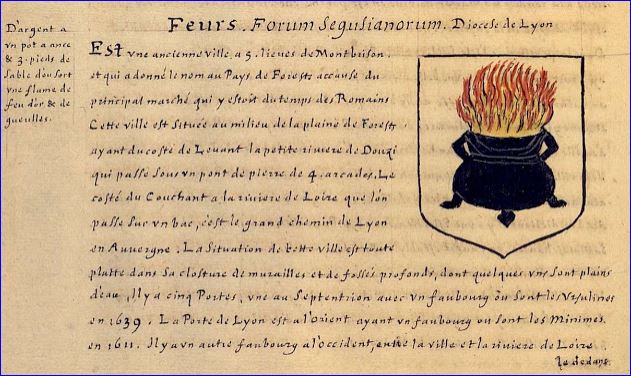 Feurs. Forum Segusianorum. Diocese de Lyon
D'argent a
vn pot a ance
& 3. pieds de
sable d'ou sort
vne flame de
feu d'or & de
gueulles.
Est vne ancienne ville, a 5. lieues de Montbrison
et qui a donné le nom au Pays de Forest accause du
principal marché qui y estoit du temps des Romains
Cette ville est située au milieu de la plaine de Forest
ayant du costé de Leuant la petite riviere de Douzi
qui passe sous vn pont de pierre de 4. arcades. Le
costé du Couchant a la riviere de Loire que l'on
passe sur vn bac, c'est le grand chemin de Lyon
en Auvergne. La Situation de cette ville est toute
platte dans sa closture de murailles et de fossés profonds, dont quelques vns sont plains
d'eau, Il y a cinq Portes, vne au Septentrion avec vn faubourg ou sont les Vrsulines
en 1639. La Porte de Lyon est a l'orient ayant vn faubourg ou sont les Minimes
en 1611. Il y a vn autre fauboura a l'occident, entre la ville et la riviere de Loire
le dedans.